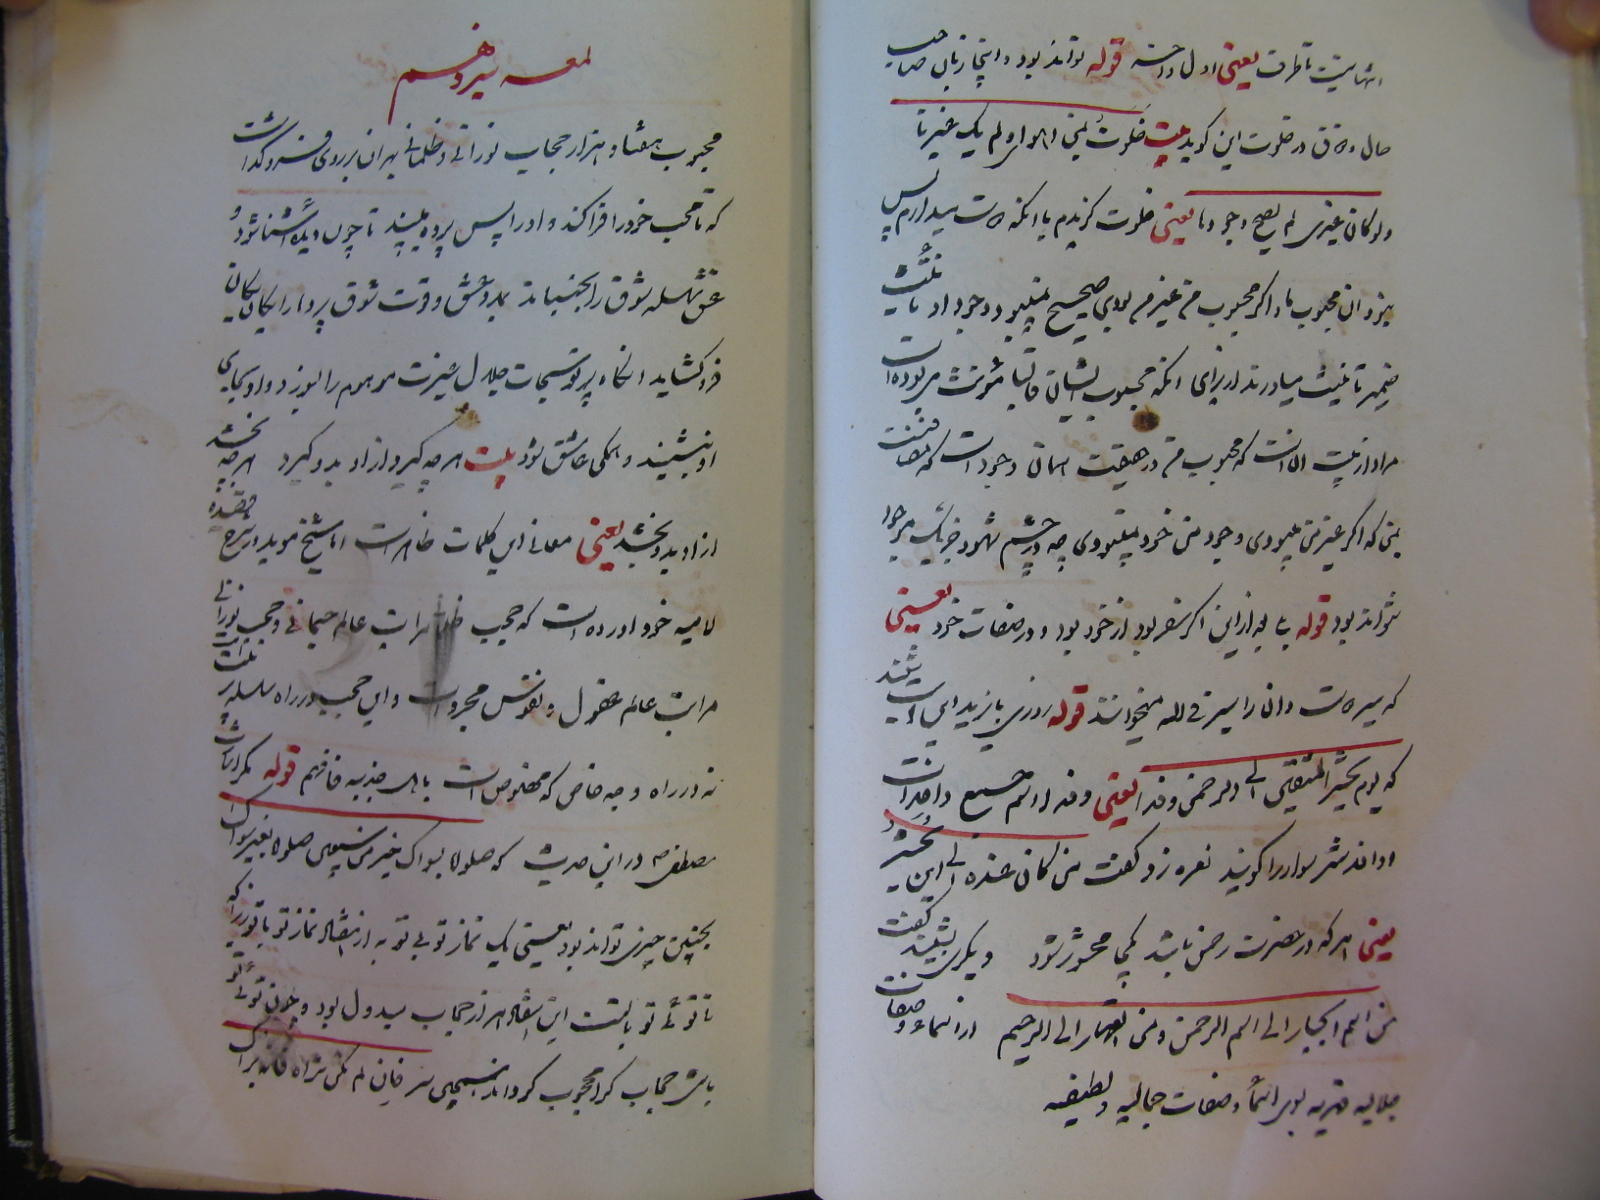 انهایت تا طرف یعنی اول و آخر قوله تواند بود و اینجا زبان صاحب
حال و ذوق در خلوت این گوید بیت خلوت بمن اهوی و لم یک غیرنا
ولو کان غیری لم یصح وجودنا یعنی خلوت گزیدم با آنکه دوست میدارم پس
نبود آن محبوب ما و اگر محبوب من غیر من بودی صحیح نمیبود وجود او تا
ضمیر تانیث میآورند از برای آنکه محبوب ایشان غالبا مونث می بوده است
مراد از بیت آنست که محبوب من در حقیقت همان وجود است که
یعنی که اگر غیر من میبودی وجود من خود نمیبودی چه در چشم شهود جز یک موجود
نتواند بود قوله بعد از این اگر سفر بود از خود بود و در صفات خود یعنی
که سیر دوست و آن را سیر فی الله میخوانند قوله روزی بایزید این آیت شنید
که یوم نحشر المتقین الی الرحمن وفدا یعنی وفد اسم جمع وافد است
و وافد شتر سوار را گویند نعره زد و گفت من کان عنده الی این نحشر
یعنی هر که در حضرت رحمن باشد کجا محشور شود دیگری بشنید گفت
من اسم الجبار الی اسم الرحمن و من القهار الی الرحیم از اسماء و صفات
جلالیه قهریه بوی اسماء و صفات جمالیه و لطیفیه
لمعه سیزدهم
محبوب هفتاد هزار حجاب نورانی و ظلمانی بهر آن بر روی فرو گذاشت
که تا محب خو را فرا کند و او را پس پرده بیند تا چون دیده آشنا شود و
عشق سلسله شوق را بجنباند بمدد عشق و قوت شوق پردها را یکان یکان
فرو گشاید آنگاه پرتو سبحات جلال غیرت موهوم را بسوزد و او بجای
او بنشیند و همگی عاشق شود بیت هر چه گیرد از او بدو گیرد هر چه بخشد
از او بدو بخشد یعنی معانی این کلمات ظاهر است اما شیخ موید در شرح قصیده
لامیه خود آورده است که حجب مراتب عالم جسمانی و حجب نورانی
مراتب عالم عقول و نفوس مجرد است و این حجب در راه سلسله ترتیب است
نه در راه وجه خاص که مخصوص است باهل جذبه فافهم قوله مگر اشارت
مصطفی ص در این حدیث که صلوة بسواک خیر من سبعین صلوة بغیر سواک
بچنین چیزی تواند بود یعنی یک نماز تو بی تو به از هفتاد نماز تو با تو زیرا که
تا تو با توئی این هفتاد هزار حجاب مسدول بود و چون تو بی تو
باشی حجاب کرا محجوب گرداند فان لم تکن تراه فانه یراک